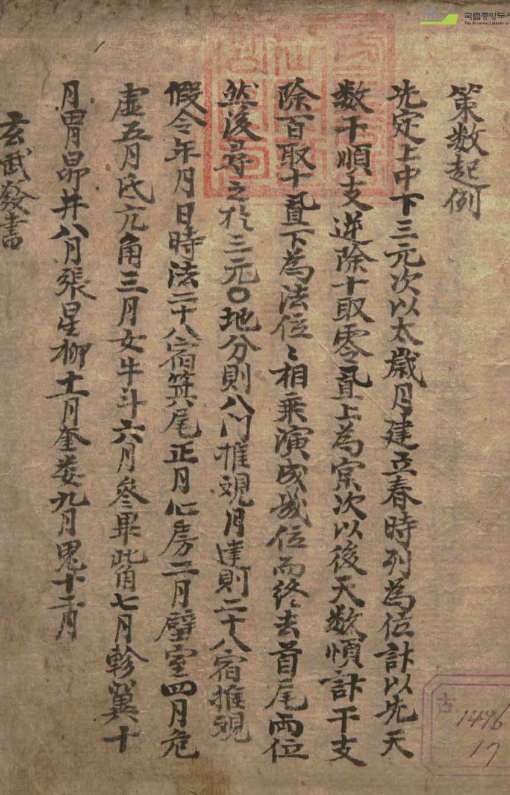 策数起例
先定上中下三元次以太歲月建立春時列為位計以先天
数干順支逆除十取零置上為宗次以後天数順計干支
除百取十置下為法位〻相乘演成幾位而終去首尾兩位
然後尋之於三元〇地分則八門推覌月建則二十八宿推覌
假令年月日時法二十八宿箕尾正月心房二月壁室四月危
虚五月氐亢角三月女牛斗六月參畢觜七月軫翼十
月胃昴井八月張星柳十一月奎婁九月鬼十二月
玄武發書
國立中央
古
1496
17